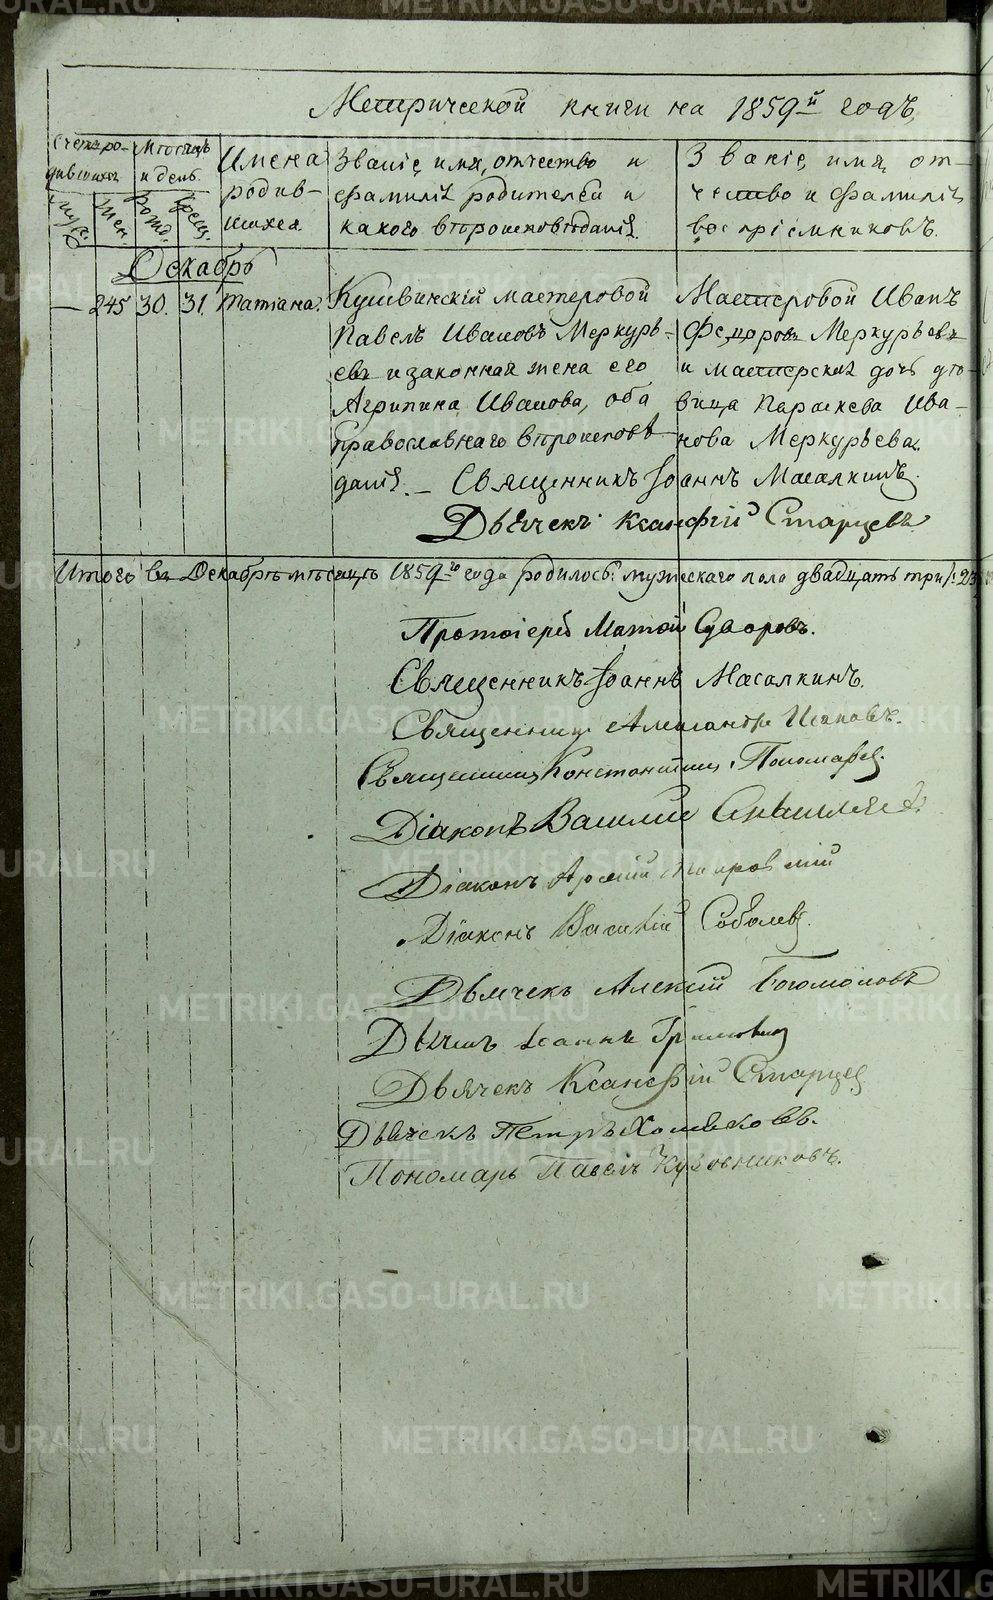 Метрической книги на 1859й годъ.
Счетъ ро-
дившихся
муж.
жен.
Мѣсяцъ
и день.
рожд.
крещ.
Имена
родив-
шихся.
Званіе, имя, отчество и
фамилія родителей и
какого вѣроисповѣданія.
Званіе, имя, от-
чество и фамилія
воспріемниковъ.
Декабрь
— 245 30. 31. Татіана.
Кушвинскій мастеровой
Павелъ Ивановъ Меркурь-
евъ и законная жена его
Агрипина Иванова, оба
православнаго вѣроисповѣ-
данія. — Священникъ Іоаннъ Масалкинъ.
Дьячекъ Ксанфій Старцевъ
Мастеровой Иванъ
Федоровъ Меркурьевъ
и мастерская дочь дѣ-
вица Параскева Ива-
нова Меркурьева.
Итого въ Декабрѣ мѣсяцѣ 1859го года родилось: мужескаго пола двадцать три /: 23
Протоіерей Матѳей Суворовъ.
Священникъ Іоаннъ Масалкинъ.
Священникъ Александръ
Священникъ Константинъ Пономаревъ.
Діаконъ Василий
Діаконъ
Діаконъ Василій Соболевъ.
Дьячекъ Алексій Богомоловъ
Дьячекъ Іоаннъ
Дьячекъ Ксанфій Старцевъ
Дьячекъ Петръ Хомяковъ.
Пономарь Павелъ Кузовниковъ.
METRIKI.GASO-URAL.RU